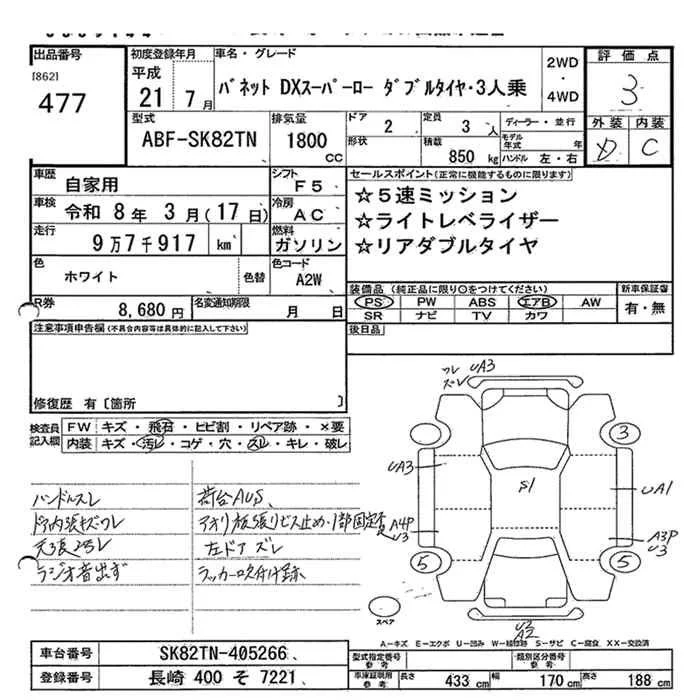 出品番号
[862]
477
初度登録年月
平成
21年7月
車名・グレード
バネット DXスーパーロー ダブルタイヤ・3人乗
2WD
・
4WD
評価点
3
外装 内装
D C
型式
ABF-SK82TN
排気量
1800
CC
ドア
2
定員
3人
ディーラー・並行
形状
積載
850kg
モデル
年式 年
ハンドル 左・右
車歴
自家用
シフト
F5
車検
令和 8年 3月(17日)
冷房
AC
走行
9万7千917 km
燃料
ガソリン
色
ホワイト
色替
色コード
A2W
R券
8,680円
名変通知期限
月 日
セールスポイント(正常に機能するものに限ります)
☆5速ミッション
☆ライトレベライザー
☆リアダブルタイヤ
装備品 (純正品に限り○をつけてください)
新車保証書
PS PW ABS エアB AW
有・無
SR ナビ TV カワ
後日品
注意事項申告欄(不具合内容等は具体的に記入して下さい)
修復歴 有〔箇所 〕
検査員
記入欄
FW キズ・飛石・ヒビ割・リペア跡・×要
内装 キズ・汚レ・コゲ・穴・スレ・キレ・破レ
ハンドルスレ
ドア内張キズワレ
天張ヨゴレ
ラジオ音出ず
荷台AUS
アオリ板張りビス止め・1部固定
左ドアズレ
ラッカー吹付け跡
ワレ
ズレ
UA3
3
UA3
S1
UA1
A4P
U3
A3P
U3
5
5
スペア
U2
A2
A-キズ E-エクボ U-凹み W-補修跡 S-サビ C-腐食 XX-交換済
車台番号
SK82TN-405266
登録番号
長崎 400 そ 7221
型式指定番号
参考
類別区分番号
参考
車庫証明用
参考
長さ
433 cm
幅
170 cm
高さ
188 cm